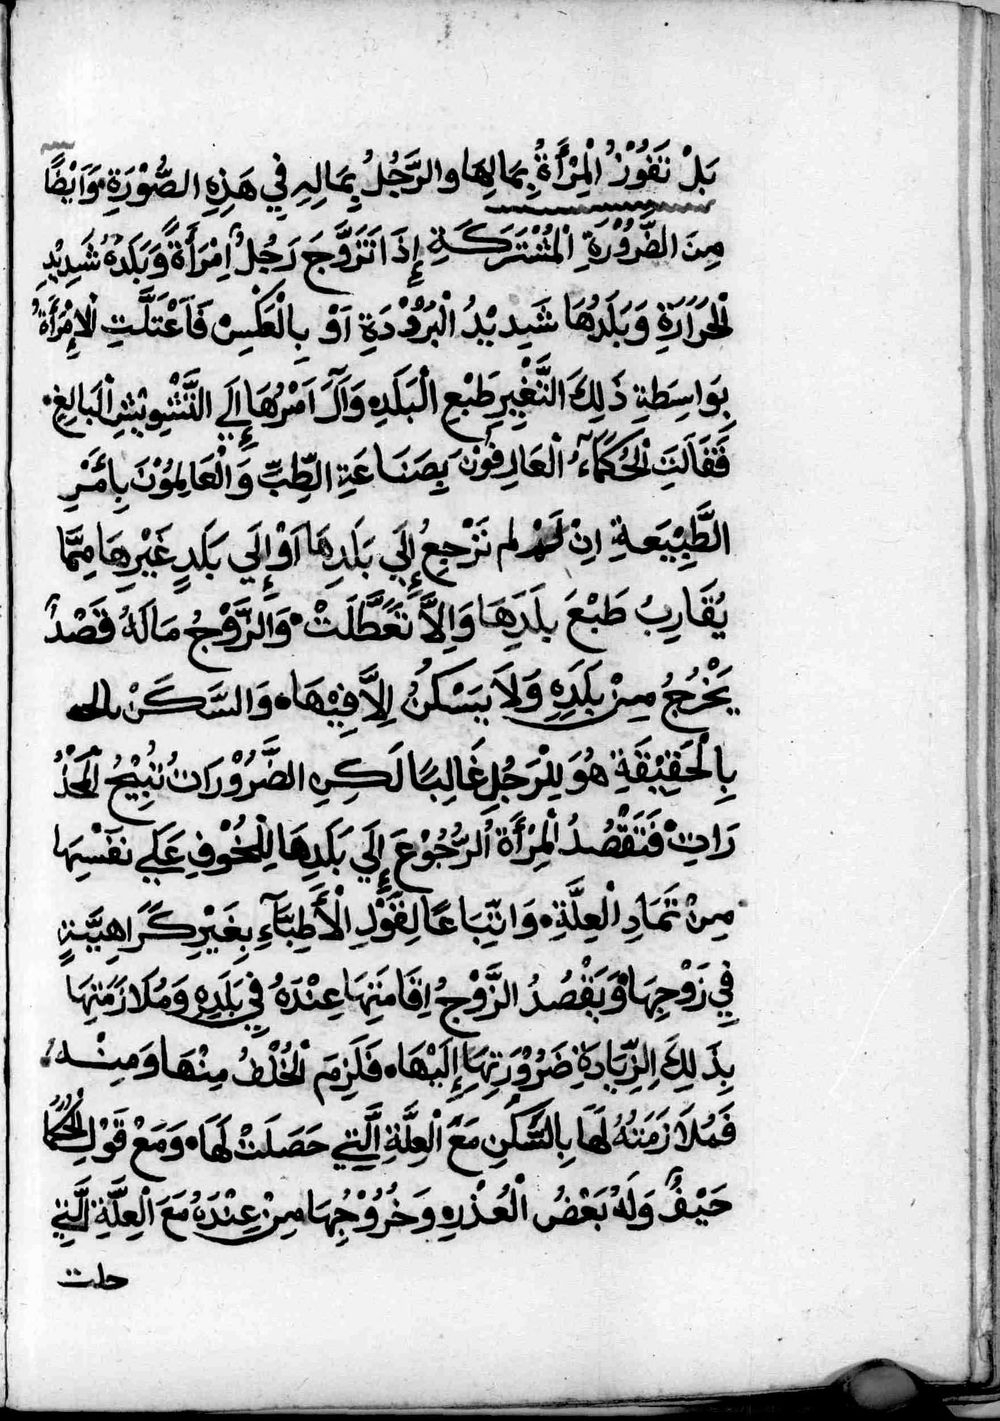 بَلْ تَفُوْزُ الْمِرْأَةُ بِمَالِهَا وَالرَّجُلُ بِمَالِهِ فِي هَذِهِ الصُّوْرَةِ وَاَيْضًا
مِنَ الضَّرُوْرَةِ الْمُشْتَرَكَةِ إِذَا تَزَوَّجَ رَجُلٌ اِمْرَأَةً وَبَلَدُهُ شَدِيْدِ
الْحَرَارَةِ وَبَلَدُهَا شَدِيْدُ الْبَرُوْدَةِ اَوْ بِالْعَكْسِ فَاَعْتَلَّتِ الْاِمْرَأَةُ
بِوَاسِطَةِ ذَلِكَ التَّغْيِيرِ طَبْعِ الْبَلَدِ وَآلَ اَمْرُهَا إِلَي التَّشْوِيْشِ الْبَالِغِ
فَقَالَتِ الْحُكَمَآءُ الْعَارِفُوْنَ بِصَنَاعَةِ الطِّبِّ وَالْعَالِمُوْنَ بِأَمْرِ
الطَّبِيْعَةِ اِنْ لم تَرْجِعُ إِلَي بَلَدِهَا اَوْ إِلَي بَلَدٍ غَيْرِهَا مِمَّا
يُقَارِبُ طَبْعَ بَلَدِهَا وَاِلاَّ تَعَطَّلَتْ وَالزَّوْجُ مَالَهُ قَصْدٌ
يَخْرُجُ مِنْ بَلَدِهِ وَلاَ يَسْكُنُ اِلاَّ فِيْهَا وَالسَّكَنْ بالح
بِالْحَقِيْقَةِ هُوَ لِلرَّجُلِ غَالِبًا لَكِنِ الضَّرُوْرَاتُ تُبِيْحُ الْمَحْذُ
رَاتِ فَتَقْصُدُ الْمِرْأَةُ الرُّجُوْعَ إِلَي بَلَدِهَا لِلْخُوْفِ عَلَي نَفْسِهَا
مِنْ تَمَادِ الْعِلَّةِ وَاتِّبَاعًا لِقَوْلِ الْأَطِبَّآءِ بِغَيْرِ كَرَاهِيَّةٍ
فِي زَوْجِهَا وَيَقْصُدُ الزَّوْجُ اِقَامَتِهَا عِنْدَهُ فِي بَلَدِهِ وَمُلَازَمَتِهَا
بِذَلِكَ الزِّيَادَةِ ضَرُوْرَتِهَا إِلَيْهَا فَلَزِمَ الْخُلْفُ مِنْهَا وَمِنْهُ
فَمُلَازَمَتُهُ لَهَا بِالسَّكَنِ مَعَ الْعِلَّةِ الَّتِي حَصَلَتْ لَهَا وَمَعْ قَوْلِ الْحُكَمَا
حَيْفٌ وَلَهُ بَعْضُ الْعُذْرِ وَخُرُوْجُهَا مِنْ عِنْدَهُ مَعَ الْعِلَّةِ الَّتِي
حلت